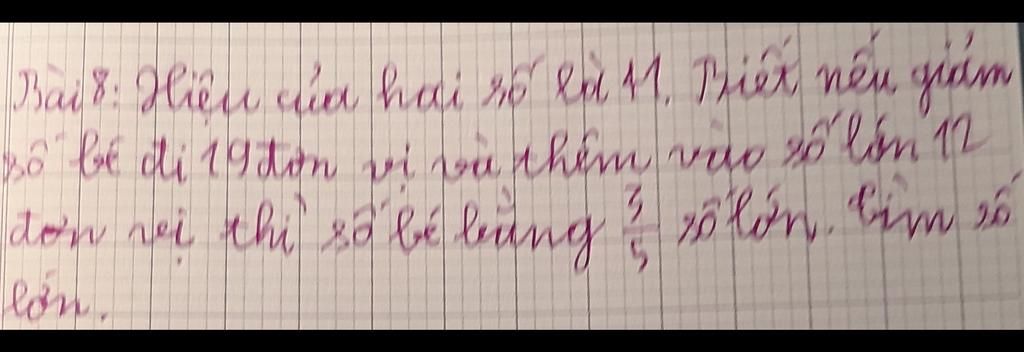 Bài 8: Hiệu của hai số là 11. Biết nếu giảm
số bé đi 19 đơn vị và thêm vào số lớn 12
đơn vị thì số bé bằng 3/5 số lớn. tìm số
lớn.